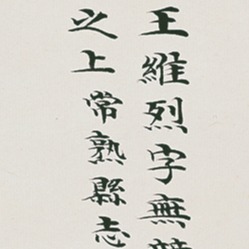 王維烈字無
之上常熟縣志